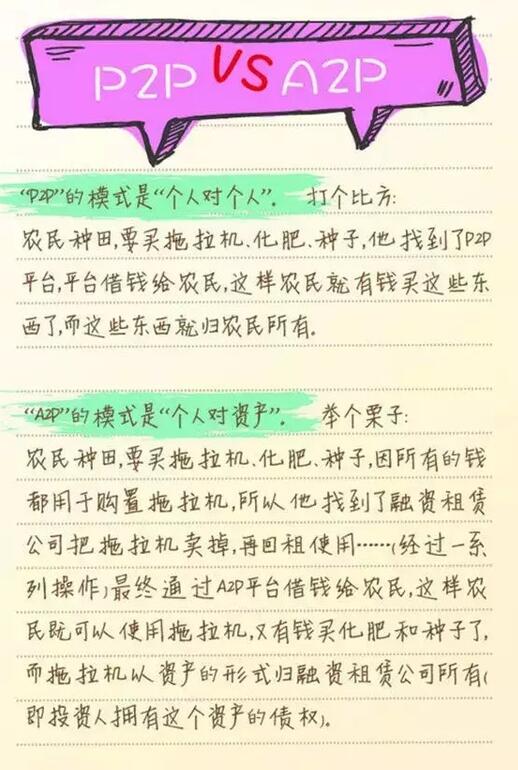 P2P VS A2P
“P2P”的模式是“个人对个人”。 打个比方:
农民种田,要买拖拉机、化肥、种子,他找到了P2P
平台,平台借钱给农民,这样农民就有钱买这些东
西了,而这些东西就归农民所有。
“A2P”的模式是“个人对资产”。 举个栗子:
农民种田,要买拖拉机、化肥、种子,因所有的钱
都用于购置拖拉机,所以他找到了融资租赁
公司把拖拉机卖掉,再回租使用……(经过一系
列操作)最终通过A2P平台借钱给农民,这样农
民既可以使用拖拉机,又有钱买化肥和种子了,
而拖拉机以资产的形式归融资租赁公司所有(
即投资人拥有这个资产的债权)。